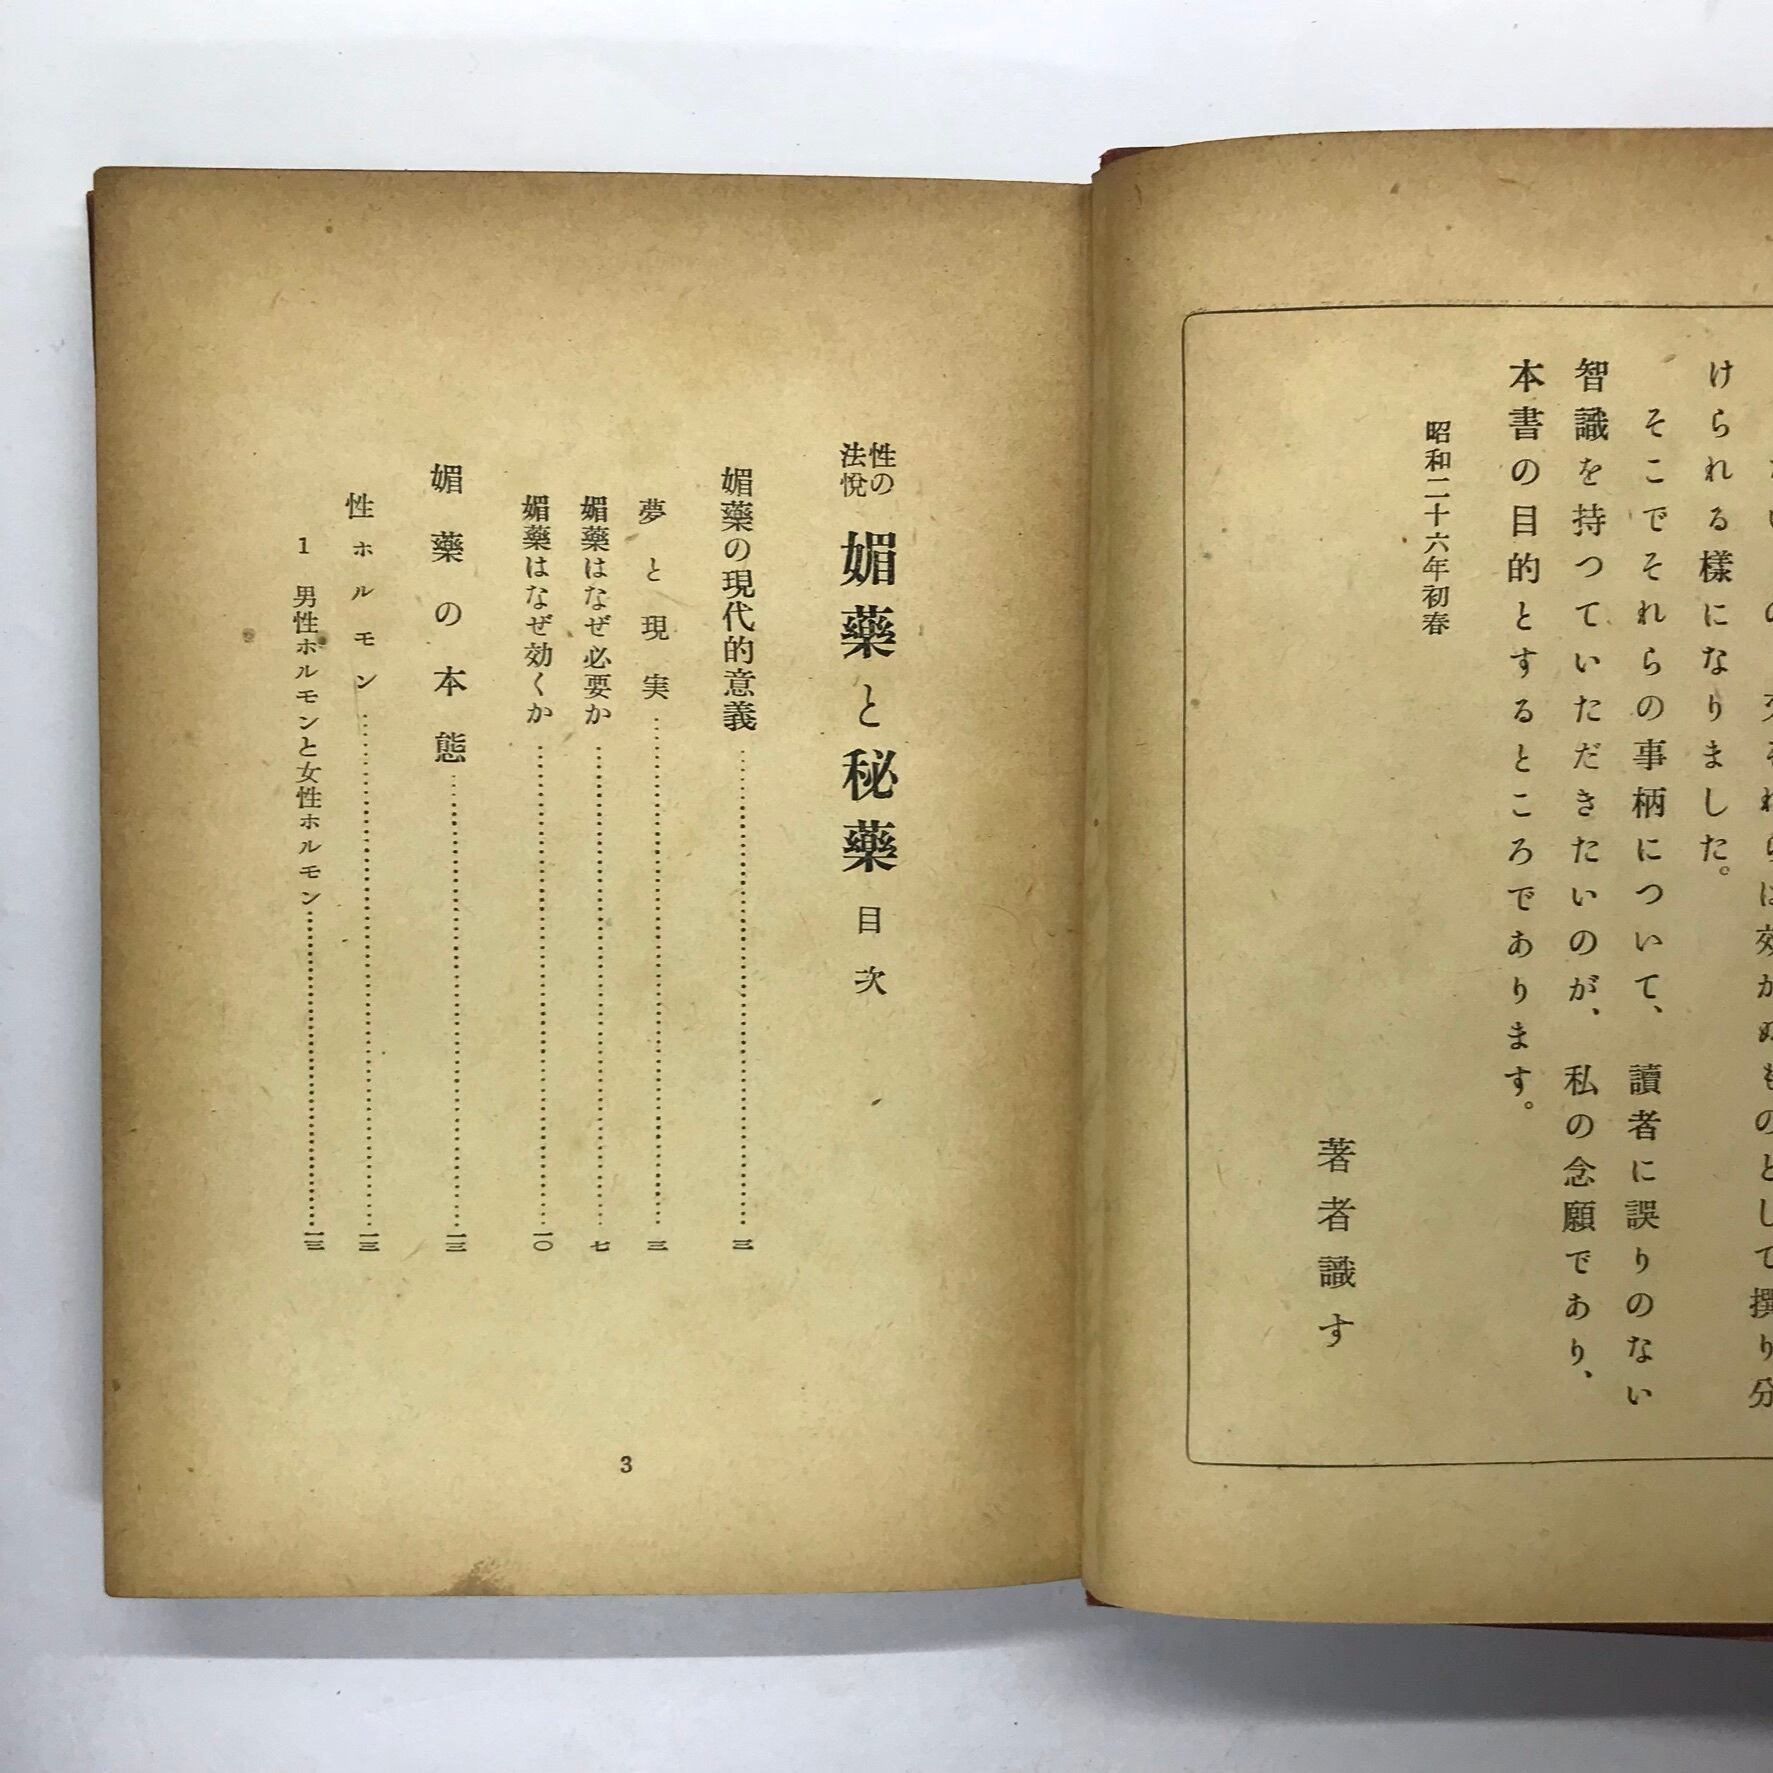 それらは効かぬものとして撰り分
けられる様になりました。
そこでそれらの事柄について、讀者に誤りのない
智識を持つていただきたいのが、私の念願であり、
本書の目的とするところであります。
昭和二十六年初春
著者識す
性の法悅 媚藥と秘藥 目次
媚藥の現代的意義……三
夢と現実……三
媚藥はなぜ必要か……七
媚藥はなぜ効くか……一〇
媚藥の本態……一三
性ホルモン……一三
1 男性ホルモンと女性ホルモン……一三
3